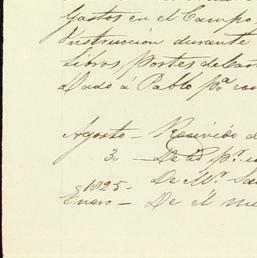 Gastos en el Campo,
Instruccion durante
Libros, Portes de Car
Dado á Pablo p.a com
Agosto - Recivido d
3. - De id p.r
1825-
De M.r Sa
Enero - De el mi